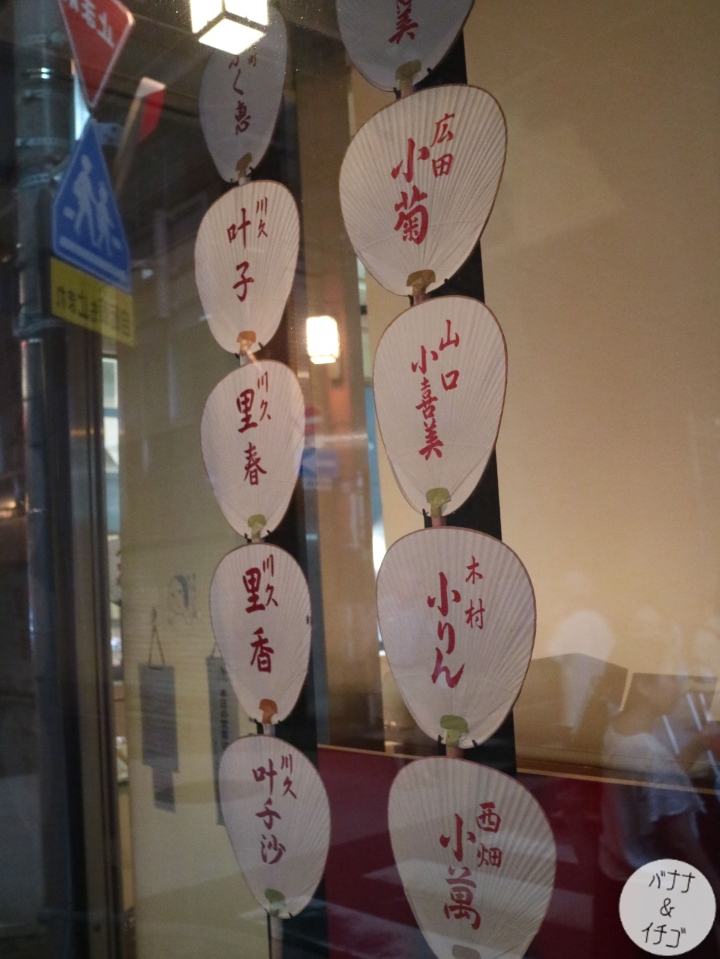 く恵
美
広田
小菊
川久
叶子
山口
小喜美
川久
里春
木村
小りん
川久
里香
川久
叶千沙
西畑
小萬
止まれ
自転車も止まれ
バナナ
&
イチゴ